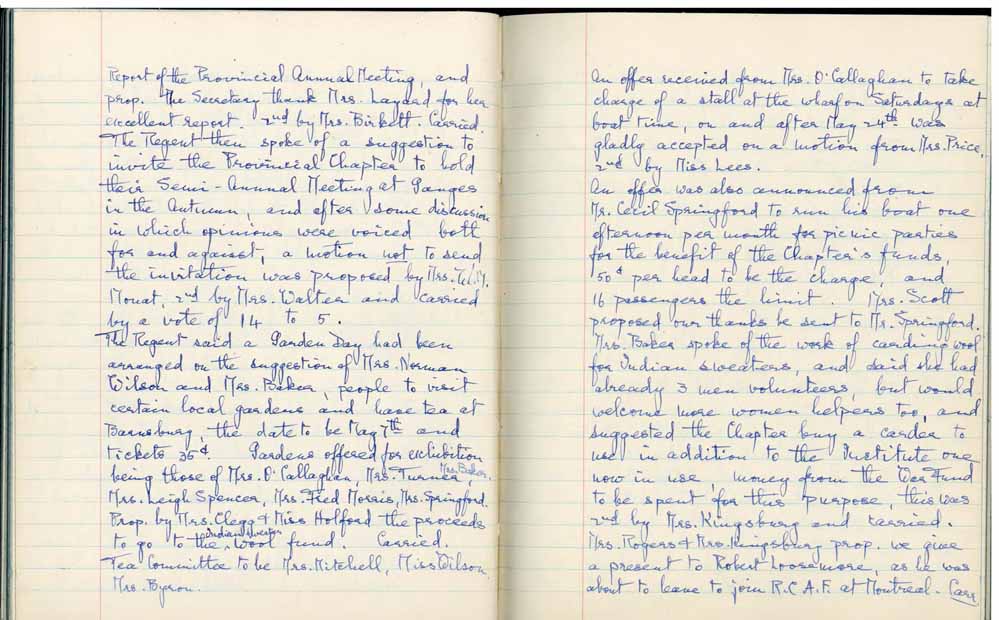 Report of the Provincial Annual Meeting, and
prop. the Secretary thank Mrs. Layard for her
excellent report. 2nd by Mrs. Birkett. Carried.
The Regent then spoke of a suggestion to
invite the Provincial Chapter to hold
their Semi-Annual Meeting at Ganges
in the Autumn, and after some discussion
in which opinions were voiced both
for and against, a motion not to send
the invitation was proposed by Mrs. W.M.
Mouat, 2nd by Mrs. Walter and carried
by a vote of 14 to 5.
The Regent said a Garden Day had been
arranged on the suggestion of Mrs. Norman
Wilson and Mrs. Baker, people to visit
certain local gardens and have tea at
Barnsbury, the date to be May 7th and
tickets 35¢. Gardens offered for exhibition
being those of Mrs. O'Callaghan, Mrs. Turner, Mrs. Baker,
Mrs. Leigh Spencer, Mrs. Fred Morris, Mrs. Springford.
Prop. by Mrs. Clegg & Miss Holford the proceeds
to go to the Indian sweater wool fund. Carried.
Tea Committee to be Mrs. Mitchell, Miss Wilson,
Mrs. Byron.
An offer received from Mrs. O'Callaghan to take
charge of a stall at the wharf on Saturdays at
boat time, on and after May 24th was
gladly accepted on a motion from Mrs. Price,
2nd by Miss Lees.
An offer was also announced from
Mr. Cecil Springford to run his boat one
afternoon per month for picnic parties
for the benefit of the Chapter's funds,
50¢ per head to be the charge, and
16 passengers the limit. Mrs. Scott
proposed our thanks be sent to Mr. Springford.
Mrs. Baker spoke of the work of carding wool
for Indian sweaters, and said she had
already 3 men volunteers, but would
welcome more women helpers too, and
suggested the Chapter buy a carder to
use in addition to the Institute one
now in use, money from the War Fund
to be spent for this purpose, this was
2nd by Mrs. Kingsbury and carried.
Mrs. Rogers & Mrs. Kingsbury prop. we give
a present to Robert Loosemore, as he was
about to leave to join R.C.A.F. at Montreal. Carr